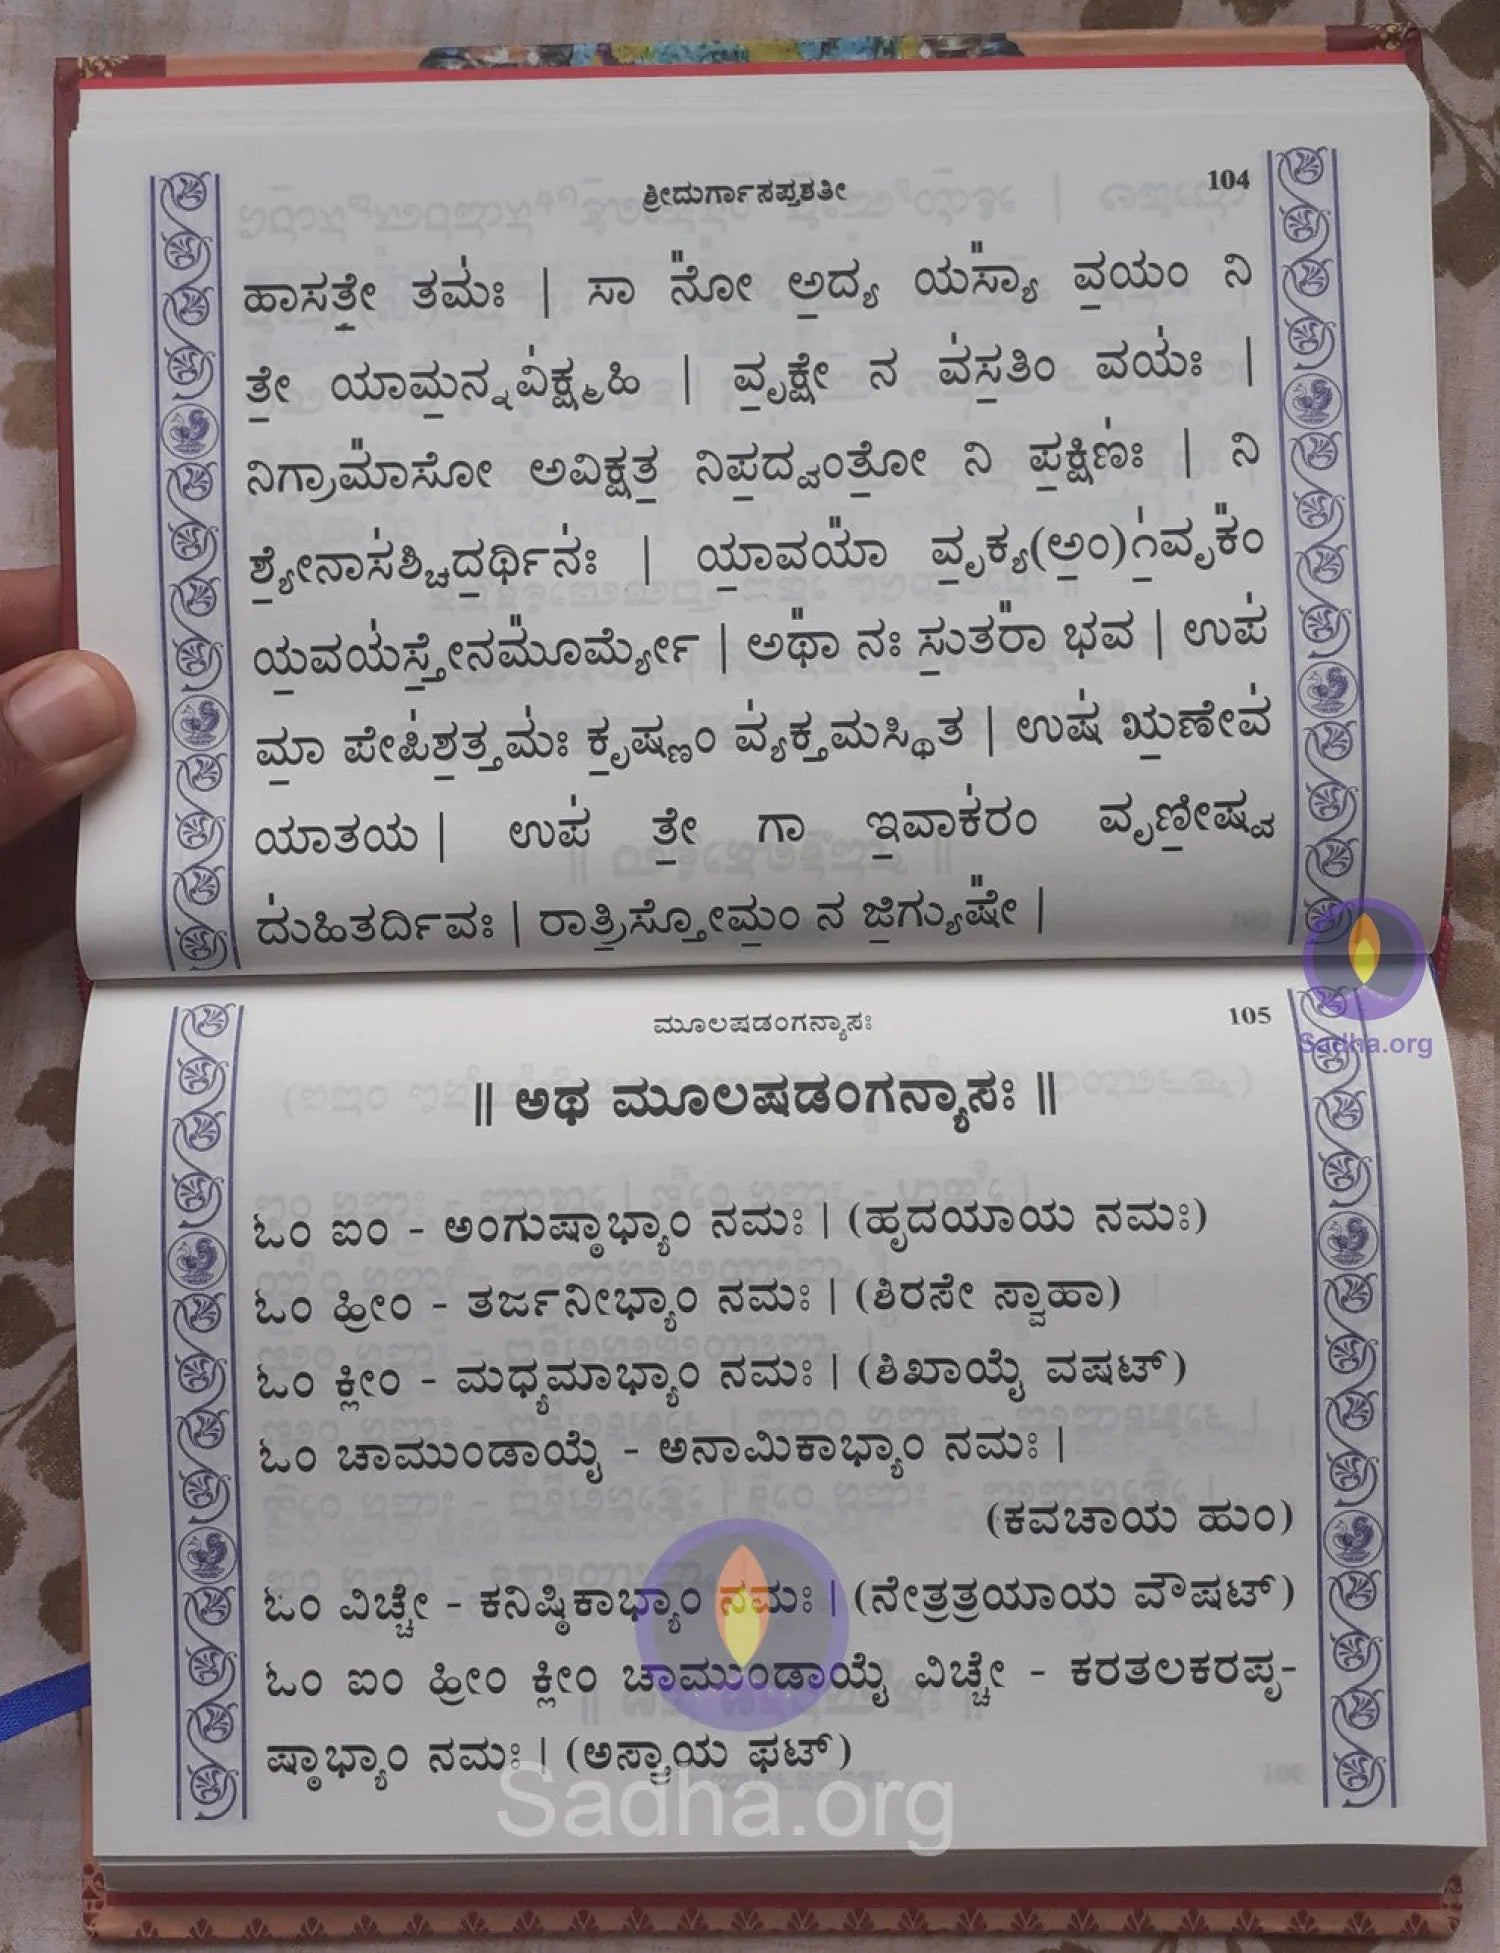 ಶ್ರೀದುರ್ಗಾಸಪ್ತಶತೀ 104
ಹಾಸತ॒ೇ ತಮಃ॑ | ಸಾ ನೋ᳚ ಅ॒ದ್ಯ ಯಸ್ಯಾ᳚ ವ॒ಯಂ ನಿ
ತೇ॒ ಯಾಮ॒ನ್ನವಿ॑ಕ್ಷ್ಮಹಿ | ವೃ॒ಕ್ಷೇ ನ ವ॑ಸ॒ತಿಂ ವಯಃ॑ |
ನಿಗ್ರಾಮಾ᳚ಸೋ ಅವಿಕ್ಷತ॒ ನಿಪ॒ದ್ವಂತೋ॒ ನಿ ಪ॒ಕ್ಷಿಣಃ॑ | ನಿ
ಶ್ಯೇ॒ನಾಸ॑ಶ್ಚಿದ॒ರ್ಥಿನಃ॑ | ಯಾ॒ವಯಾ᳚ ವೃ॒ಕ್ಯ(ಅಂ॒)೧॒॑ವೃಕಂ᳚
ಯ॒ವಯ॑ಸ್ತೇ॒ನಮೂ᳚ರ್ಮ್ಯೇ | ಅಥಾ᳚ ನಃ ಸು॒ತರಾ᳚ ಭವ | ಉಪ॑
ಮಾ॒ ಪೇಪಿ॑ಶ॒ತ್ತಮಃ॑ ಕೃ॒ಷ್ಣಂ ವ್ಯ॑ಕ್ತಮಸ್ಥಿತ | ಉಷ॑ ಋ॒ಣೇವ॑
ಯಾತಯ | ಉಪ॑ ತೇ॒ ಗಾ ಇ॒ವಾಕ॑ರಂ ವೃಣೀ॒ಷ್ವ
ದು॑ಹಿತರ್ದಿವಃ | ರಾತ್ರಿ॒ಸ್ತೋಮಂ॒ ನ ಜಿ॒ಗ್ಯುಷೇ᳚ |
ಮೂಲಷಡಂಗನ್ಯಾಸಃ 105
|| ಅಥ ಮೂಲಷಡಂಗನ್ಯಾಸಃ ||
ಓಂ ಐಂ - ಅಂಗುಷ್ಠಾಭ್ಯಾಂ ನಮಃ | (ಹೃದಯಾಯ ನಮಃ)
ಓಂ ಹ್ರೀಂ - ತರ್ಜನೀಭ್ಯಾಂ ನಮಃ | (ಶಿರಸೇ ಸ್ವಾಹಾ)
ಓಂ ಕ್ಲೀಂ - ಮಧ್ಯಮಾಭ್ಯಾಂ ನಮಃ | (ಶಿಖಾಯೈ ವಷಟ್)
ಓಂ ಚಾಮುಂಡಾಯೈ - ಅನಾಮಿಕಾಭ್ಯಾಂ ನಮಃ |
(ಕವಚಾಯ ಹುಂ)
ಓಂ ವಿಚ್ಚೇ - ಕನಿಷ್ಠಿಕಾಭ್ಯಾಂ ನಮಃ | (ನೇತ್ರತ್ರಯಾಯ ವೌಷಟ್)
ಓಂ ಐಂ ಹ್ರೀಂ ಕ್ಲೀಂ ಚಾಮುಂಡಾಯೈ ವಿಚ್ಚೇ - ಕರತಲಕರಪೃ-
ಷ್ಠಾಭ್ಯಾಂ ನಮಃ | (ಅಸ್ತ್ರಾಯ ಫಟ್)
Sadha.org
Sadha.org